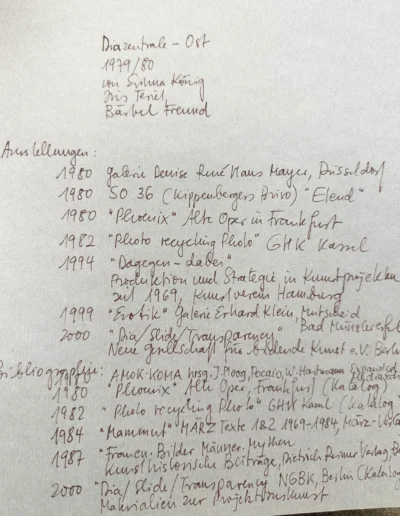 Diazentrale - Ost
1979/80
von Silvia König
Iris Teriet,
Bärbel Freund
Ausstellungen:
1980 galerie Denise René Hans Mayer, Düsseldorf
1980 SO 36 (Kippenbergers Büro) "Elend"
1980 "Phoenix" Alte Oper in Frankfurt
1982 "Photo recycling Photo" GHK Kassel
1994 "Dagegen - dabei"
Produktion und Strategie in Kunstprojekten
seit 1969, Kunstverein Hamburg
1999 "Erotik" Galerie Erhard Klein, Mutscheid
Bad Münstereifel
2000 "Dia/Slide/Transparency"
Neue Gesellschaft für bildende Kunst e.V. Berlin
Bibliographie: AMOK-KOMA hrsg. J. Moog, W. Hartmann
1980 "Phoenix" Alte Oper, Frankfurt (Katalog)
1982 "Photo recycling Photo" GHK Kassel (Katalog
1984 "Mammut" MÄRZ Texte 1&2 1969-1984, März-
1987 "Frauen. Bilder Männer. Mythen
Kunsthistorische Beiträge, Dietrich Reimer Verlag, B
2000 "Dia/Slide/Transparency NGBK, Berlin (Katalog
Materialien zur Projektionskunst